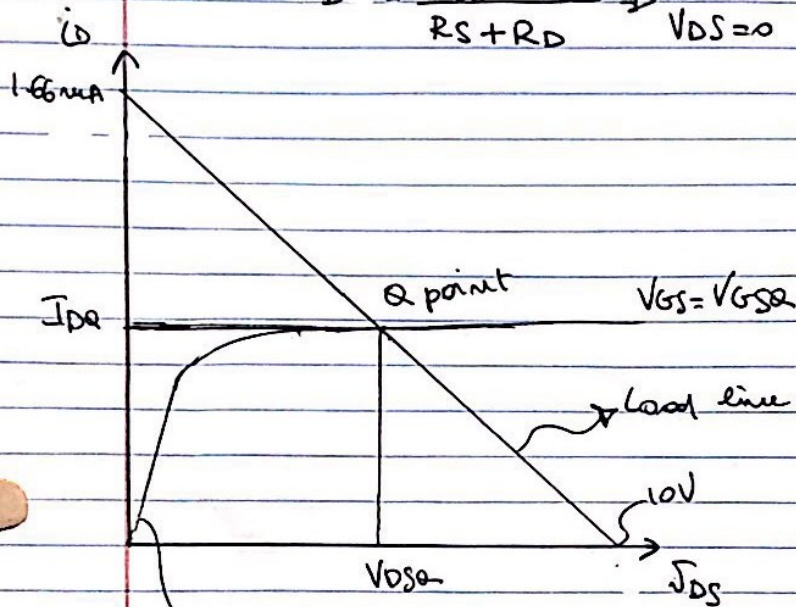 RS + RD VDS = 0
iD
1.66mA
Q point
IDQ
VGS = VGSQ
Load line
10V
VDSQ
VDS